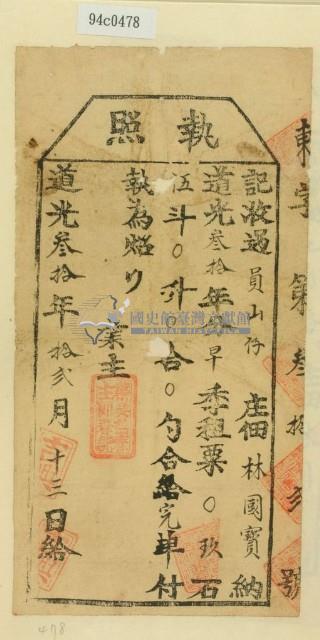 94c0478
執照
東字第叁拾弍號
記收過員山仔庄佃林國寶納
道光叁拾年早季租粟〇玖石
伍斗〇升〇合〇勺合給完单付
執為炤
業主
道光叁拾年拾弍月十三日給
國史館臺灣文獻館
TAIWAN HISTORICA
478